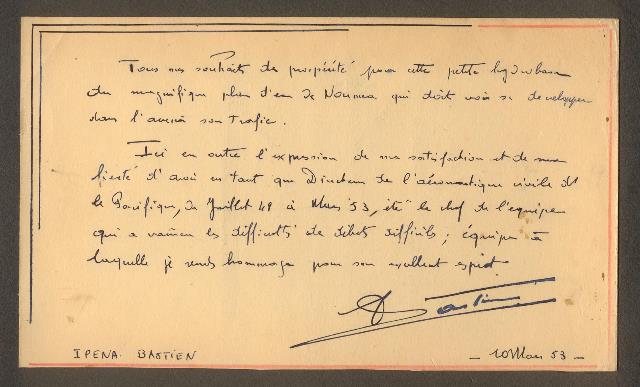 Tous nos souhaits de prospérité pour cette petite hydrobase
du magnifique plan d'eau de Nouméa qui doit voir se developper
dans l'avenir son trafic.
Ici en outre l'expression de ma satisfaction et de ma
fierté d'avoir en tant que Directeur de l'aéronautique civile ds
le Pacifique, de Juillet 49 à Mars 53, été le chef de l'équipe
qui a vaincu les difficultés de débuts difficiles ; équipe à
laquelle je rends hommage pour son excellent esprit.
Bastien
IPENA. BASTIEN
- 10 Mars 53 -